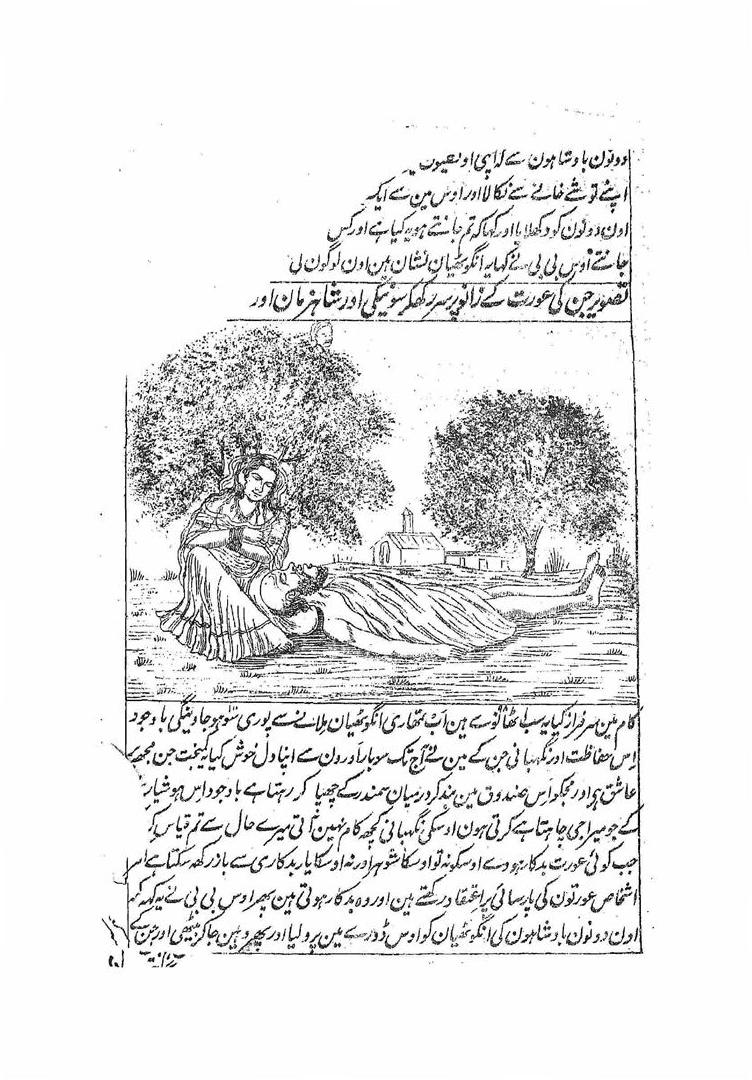 دونون بادشاہون سے لہ اپی
اپنے توشے خانے سے نکالا اور اوس مین سے ایک
اون دونون کو دکھلایا اور کہا کہ تم جانتے ہو یہ کیا ہے اور کس
جانتے اوس بی بی نے کہا یہ انگوٹھیان نشان ہین اون لوگون کی
تصویر جن کی عورت کے زانو پر سر رکھکر سونیکی اور شاہزمان اور
کام مین سرفراز کیا یہ سب اٹھانوے ۹۸ ہین اب تمھاری انگوٹھیان ملانے سے پوری سَو ہو جاوینگی باوجود
اِس حفاظت اور نگہبانی جن کے مین نے آج تک سو بار اَورون سے اپنا دل خوش کیا یہ کمبخت جن مجھپر
عاشق ہی اور مجکو اِس صندوق مین بند کر درمیان سمندر کے چھپا کر رہتا ہے باوجود اس ہوشیاری
کے جو میرا جی چاہتا ہے کرتی ہون اوسکی نگہبانی کچھ کام نہین آتی میرے حال سے تم قیاس کر
جب کوئی عورت بدکار ہووے اوسکو نہ تو اوسکا شوہر اور نہ اوسکا یار بدکاری سے باز رکھ سکتا ہے
اشخاص عورتون کی پارسائی پر اعتقاد رکھتے ہین اور وہ بدکار ہوتی ہین پھر اوس بی بی نے یہ کہہ کر
اون دونون بادشاہون کی انگوٹھیان کو اوس ڈورے مین پرو لیا اور پھر وہین جاکر بیٹھی اور جن کے